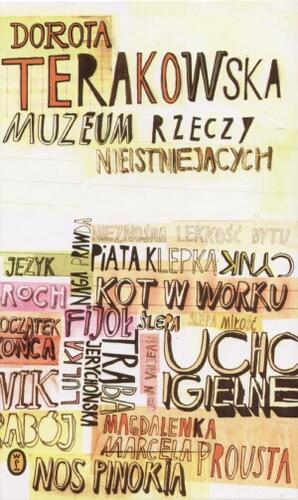 DOROTA
TERAKOWSKA
MUZEUM RZECZY
NIEISTNIEJĄCYCH
NIEZNOŚNA LEKKOŚĆ BYTU
JĘZYK
NAGA PRAWDA
PIĄTA KLEPKA
CYNK
ROCH
KOT W WORKU
POCZĄTEK
KOŃCA
FIJOŁ
ŚLEPA
ŚLEPA MIŁOŚĆ
LULKA
TRĄBA
JERYCHOŃSKA
UCHO
IGIELNE
WIK
RABÓJ
MAGDALENKA
MARCELA PROUSTA
NOS PINOKIA